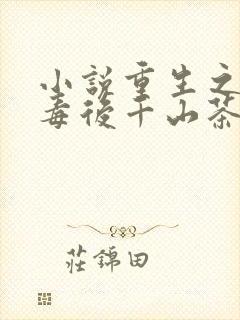 小説重生之
毒後千山茶
莊錦田